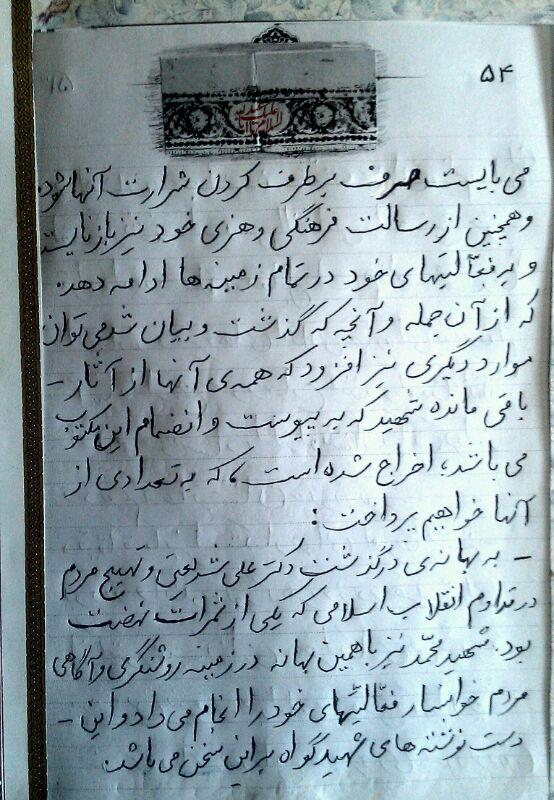 ۵۴
می بایست صرف برطرف کردن شرارت آنها شود
و همچنین از رسالت فرهنگی و هنری خود نیز باز نایستد
و به فعّالیتهای خود در تمام زمینه ها ادامه دهد.
که از آن جمله و آنچه که گذشت و بیان شد می توان
موارد دیگری نیز افزود که همه ی آنها از آثار -
باقی مانده شهید که به پیوست و انضمام این مکتوب
می باشد، اخراج شده است، که به تعدادی از
آنها خواهیم پرداخت:
- به بهانه ی درگذشت دکتر علی شریعتی و تهییج مردم
در تداوم انقلاب اسلامی که یکی از ثمرات نهضت
بود. شهید محمّد نیز با همین بهانه در زمینه روشنگری و آگاهی
مردم خوانسار فعّالیتهای خود را انجام می داد و این -
دست نوشته های شهید گواه بر این سخن می باشد.